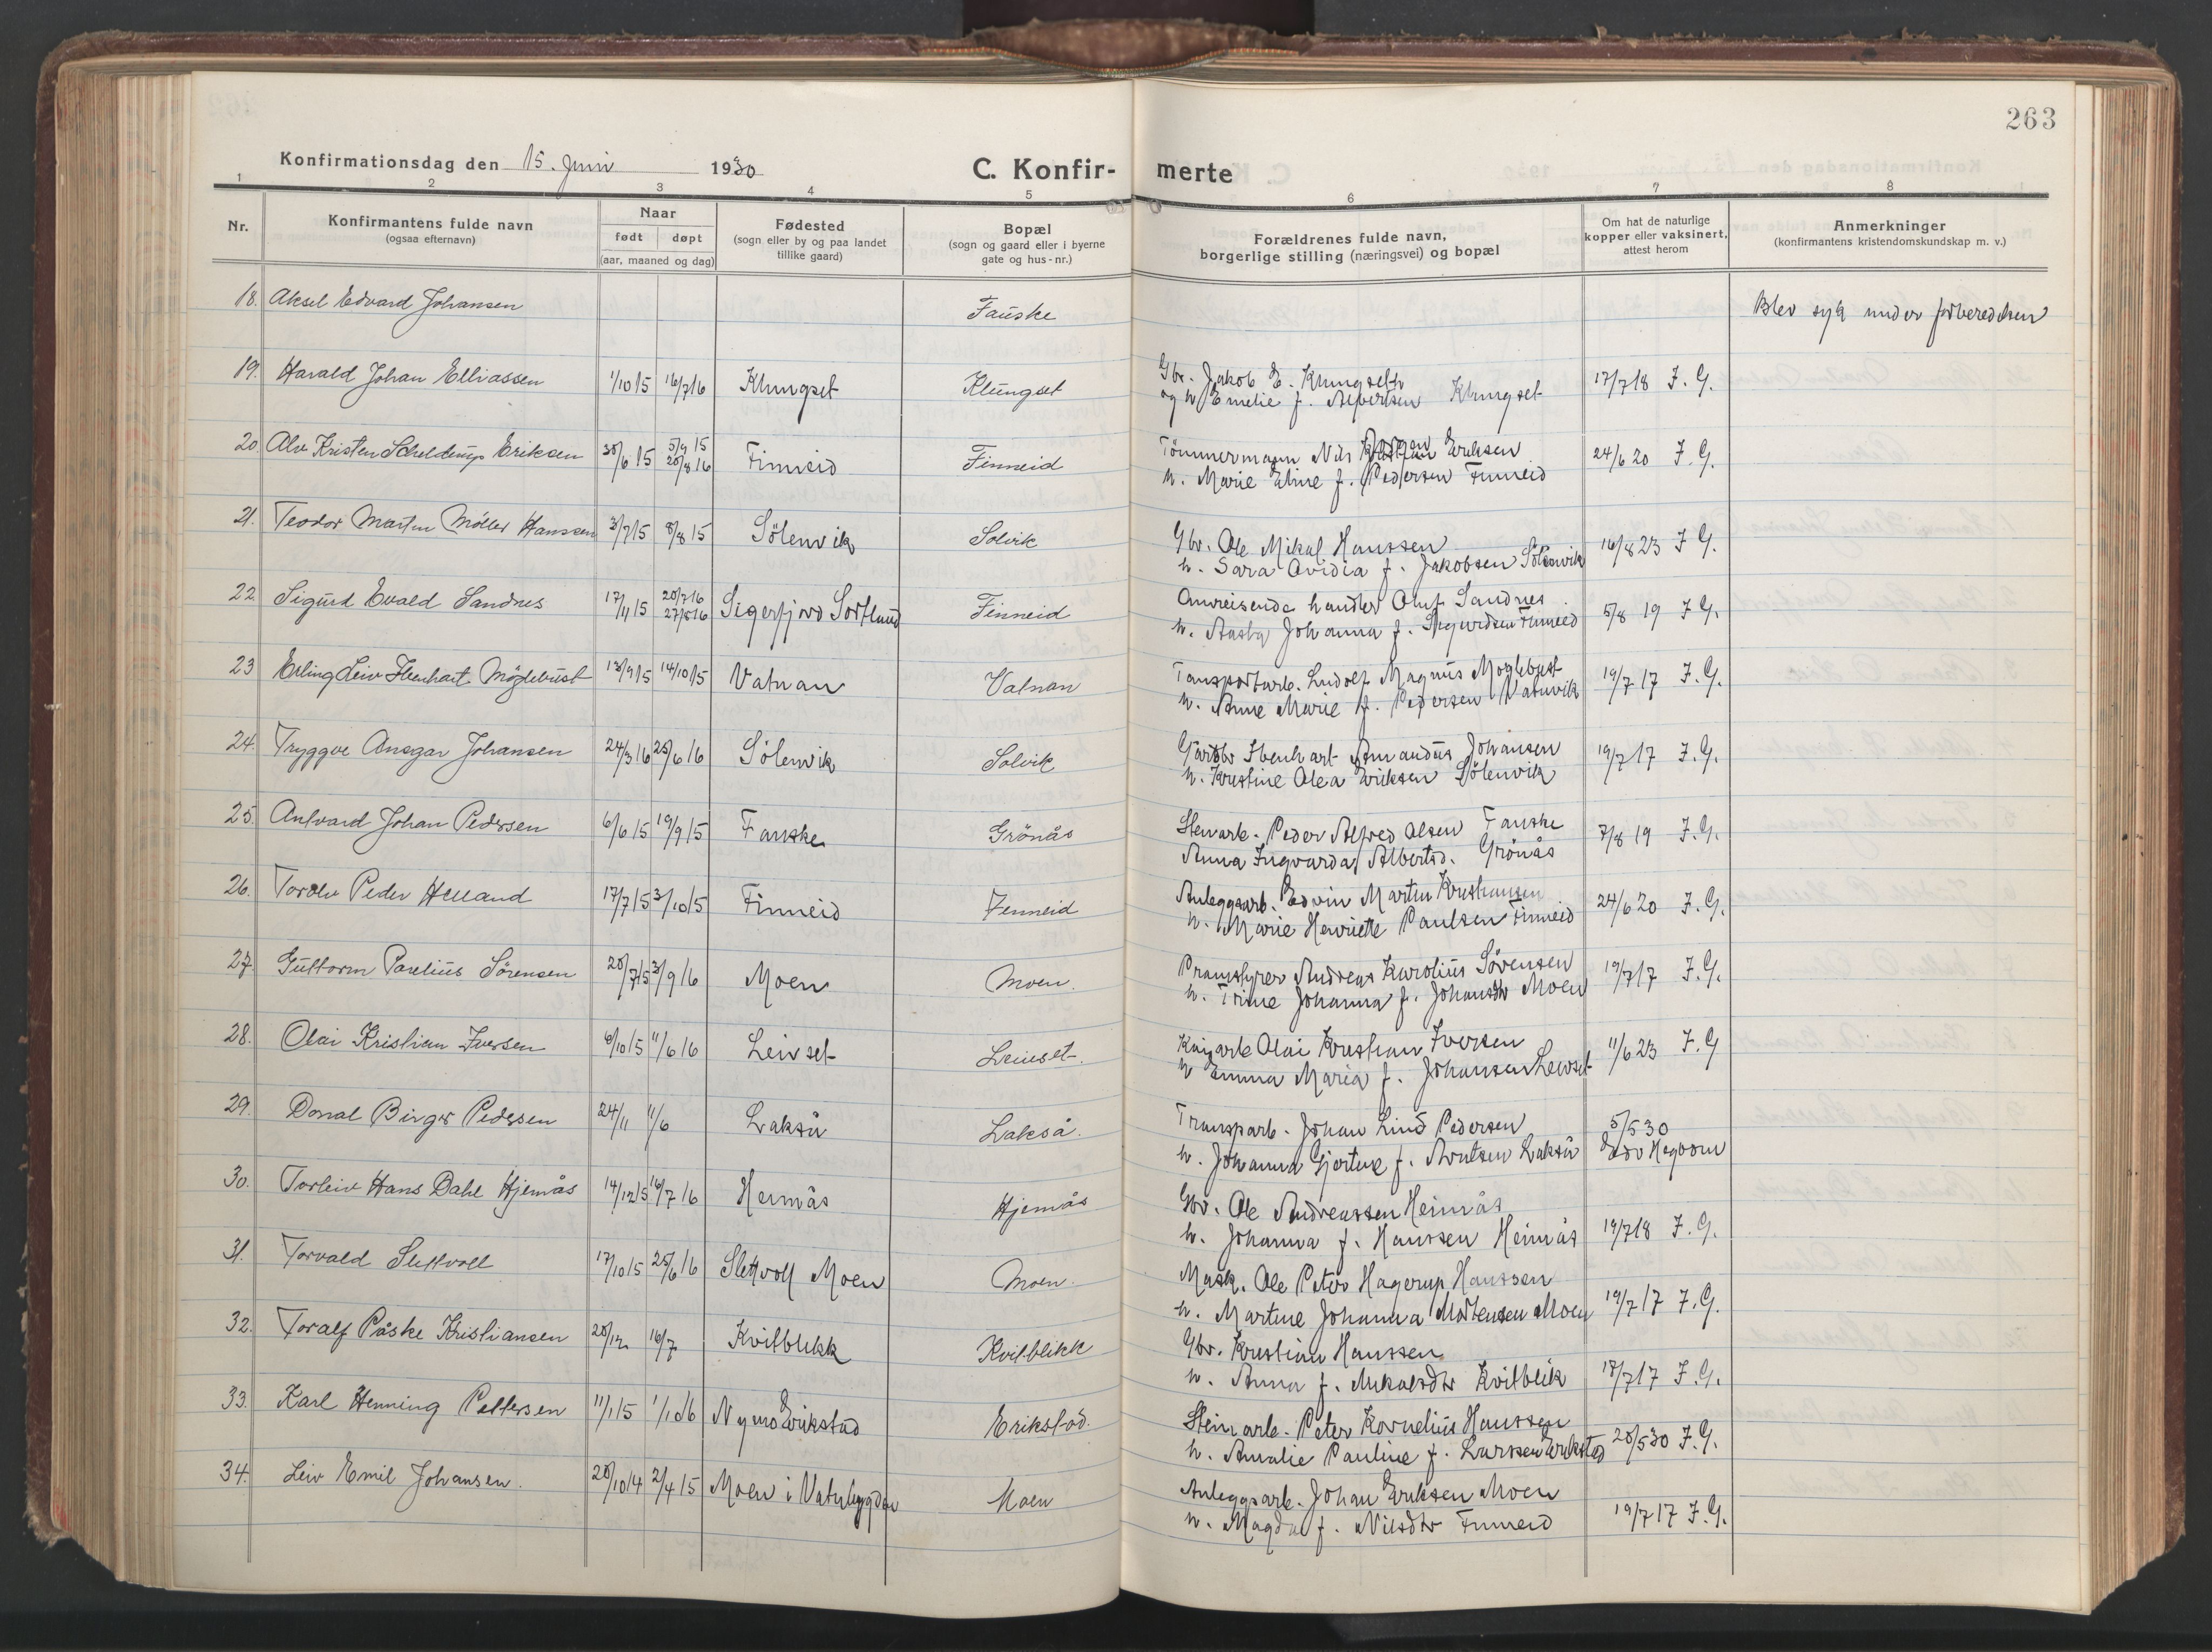 263
Konfirmationsdag den 15. Juni 1930
C. Konfirmerte
1 2 3 4 5 6 7 8
Nr.
Konfirmantens fulde navn
(ogsaa efternavn)
Naar
født døpt
(aar, maaned og dag)
Fødested
(sogn eller by og paa landet
tillike gaard)
Bopæl
(sogn og gaard eller i byerne
gate og hus-nr.)
Forældrenes fulde navn,
borgerlige stilling (næringsvei) og bopæl
Om hat de naturlige
kopper eller vaksinert,
attest herom
Anmerkninger
(konfirmantens kristendomskundskap m. v.)
18. Aksel Edvard Johansen Fauske Blev syk under forberedelsen
19. Harald Johan Elliassen 1/10 15 16/7 16 Klungset Klungset
Gbr. Jakob E. Klungseth
og h. Emelie f. Albertsen Klungset 17/7 18 F. G.
20. Alv Kristen Scheldemp Eriksen 30/6 15 5/9 15 20/8 16 Finneid Finneid
Tömmermann Nils Eriksen
h. Marie Eline f. Pedersen Finneid 24/6 20 F. G.
21. Teodor Martin Möller Hanssen 3/7 15 8/8 15 Sölenvik Solvik
Gbr. Ole Mikal Hanssen
h. Sara Ovidia f. Jakobsen Sölenvik 16/8 23 F. G.
22 Sigurd Evald Sandnes 17/11 15 20/7 16 27/8 16 Sigerfjord Sortland Finneid
Omreisende handler Oluf Sandnes
h. Aasta Johanna f. Sigurdsen Finneid 5/8 19 F. G.
23 Erling Leiv Ibenhart Möglebust 13/9 15 14/10 15 Vatnan Valnan
Tansportarb. Ludolf Magnus Moglebust
h. Anne Marie f. Pedersen Vatnvik 19/7 17 F. G.
24. Tryggve Ansgar Johansen 24/3 16 25/6 16 Sölenvik Solvik
Gardbr Ibenhart Amandus Johansen
h. Kristine Olea Eriksen Sölenvik 19/7 17 F. G.
25. Antvard Johan Pedersen 6/6 15 19/9 15 Fauske Grönås
Stenarb. Peder Alfred Olsen Fauske
Anna Ingvarda Albertsd. Grönås 7/8 19 F. G.
26. Torolv Peder Helland 17/7 15 3/10 15 Finneid Finneid
Anleggsarb. Edvin Martin Kristiansen
h. Marie Henriette Paulsen Finneid 24/6 20 F. G.
27. Guttorm Parelius Sörensen 20/7 15 3/9 16 Moen Moen.
Pramstyrer Andreas Karolius Sörensen
h. Trine Johanna f. Johansdtr Moen 19/7 17 F. G.
28. Olai Kristian Iversen 6/10 15 11/6 16 Leivset Leivset.
Kaiarb Olai Kristian Iversen
h Emma Maria f. Johansen Leivset 11/6 23 F. G
29. Donal Birger Pedersen 24/11 11/6 Lakså Lakså.
Transparb. Johan Lind Pedersen
h. Johanna Gjertine f. Arntsen Lakså 5/5 30
30. Torleiv Hans Dahl Hjemås 14/12 15 16/7 16 Heimås Hjemås
Gbr. Ole Andreassen Heimås
h. Johanna f. Hanssen Heimås 19/7 18 F. G.
31. Torvald Slettvoll 17/10 15 25/6 16 Slettvoll Moen Moen.
Mask. Ole Peter Hagerup Hanssen
h. Martine Johanna Mortensen Moen 19/7 17 F. G.
32. Toralf Påske Kristiansen 20/12 16/7 Kvitblikk Kvitblikk
Gbr. Kristian Hanssen
h. Anna f. Mikalsdtr Kvitblik 17/7 17 F. G.
33. Karl Henning Pettersen 11/1 15 1/10 16 Nymo Erikstad Erikstad.
Steinarb. Peter Kornelius Hanssen
h. Amalie Pauline f. Larssen Erikstad 28/5 30 F. G.
34. Leiv Emil Johansen. 28/10 14 2/4 15 Moen i Vatnbygden Moen
Anleggsarb. Johan Eriksen Moen
h. Magda f. Nilsdtr Finneid 19/7 17 F. G.